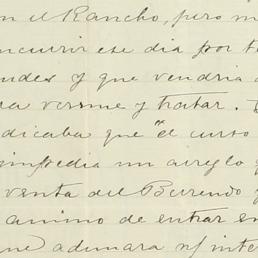 n el Rancho, pero m
ncurrir ese dia por t
udes y que vendria
da verme y tratar.
dicaba que "el curso
impedia un arreglo
venta del Burendo y
amino de entrar en
me adunara